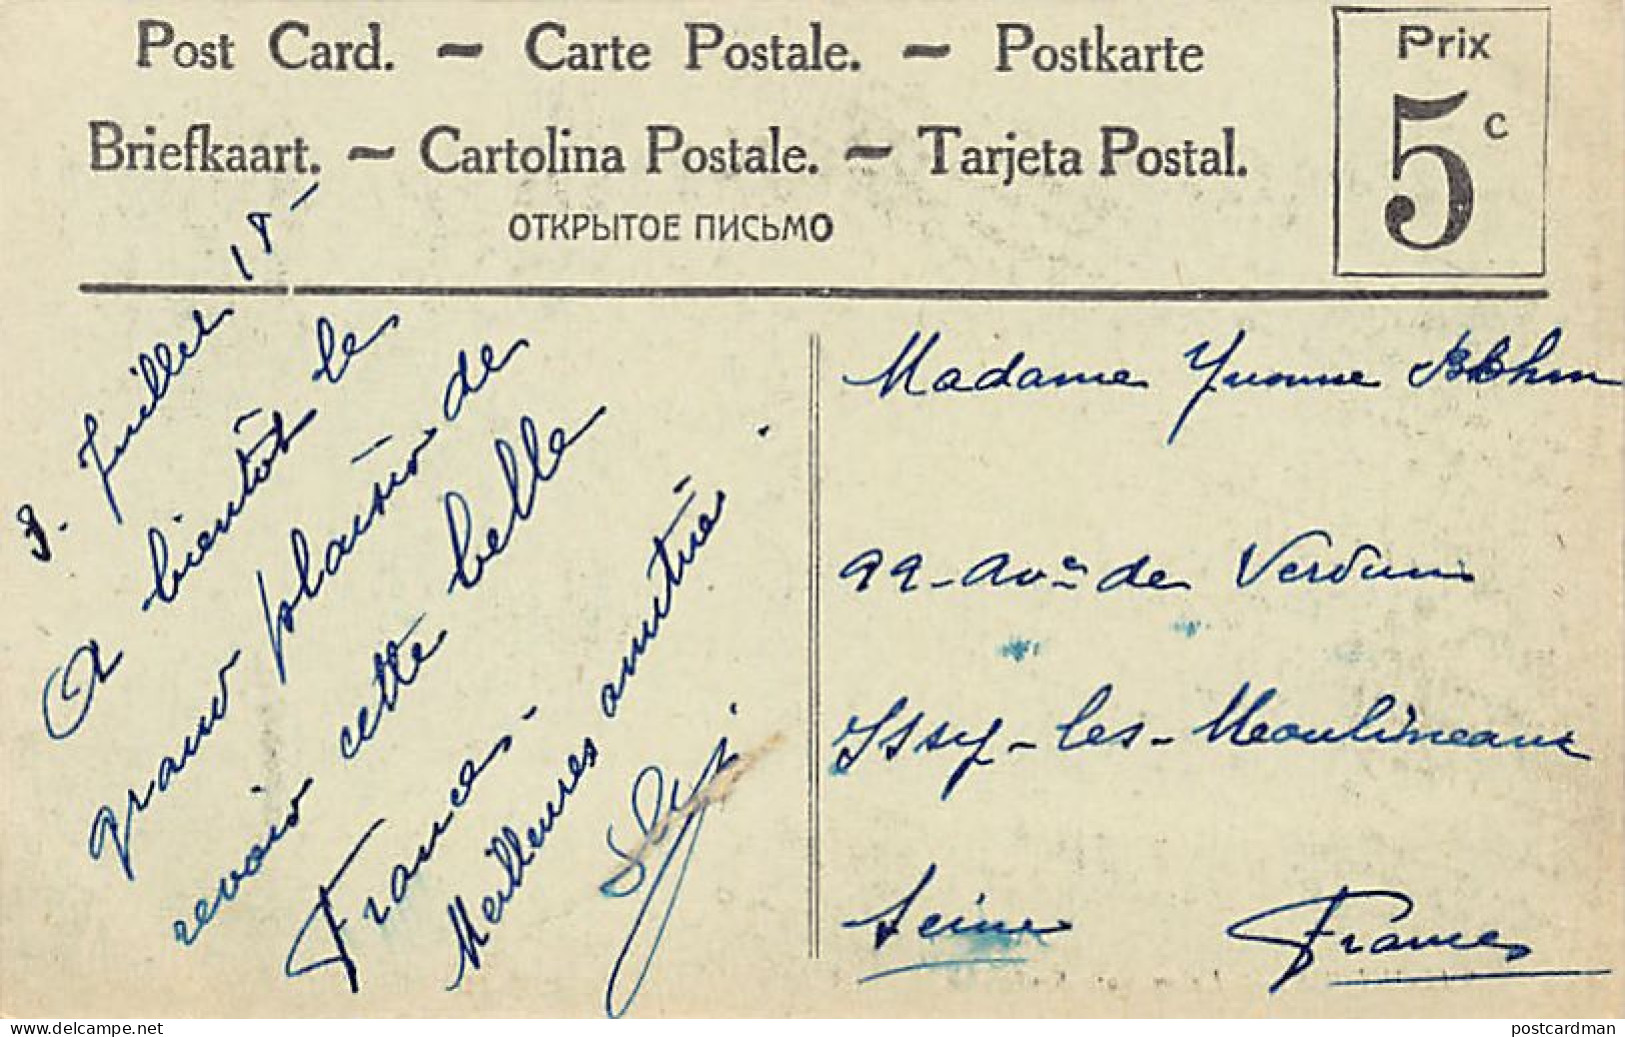 Post Card. – Carte Postale. – Postkarte
Briefkaart. – Cartolina Postale. – Tarjeta Postal.
ОТКРЫТОЕ ПИСЬМО
Prix
5 c
Juillet 18
A bientôt le
grand plaisir de
revoir cette belle
France.
Meilleures amitiés.
Madame Yvonne
99 - Ave de Verdun
Issy-les-Moulineaux
Seine
France
www.delcampe.net
postcardman